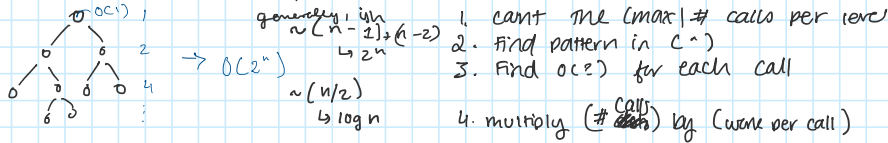 O(1) 1
2
4
⋮
→ O(2ⁿ)
generally, ish
~(n-1)+(n-2)
↳ 2ⁿ
~(n/2)
↳ log n
1. cant the (max) # calls per level
2. Find pattern in (^)
3. Find O(?) for each call
4. multiply (# calls) by (work per call)